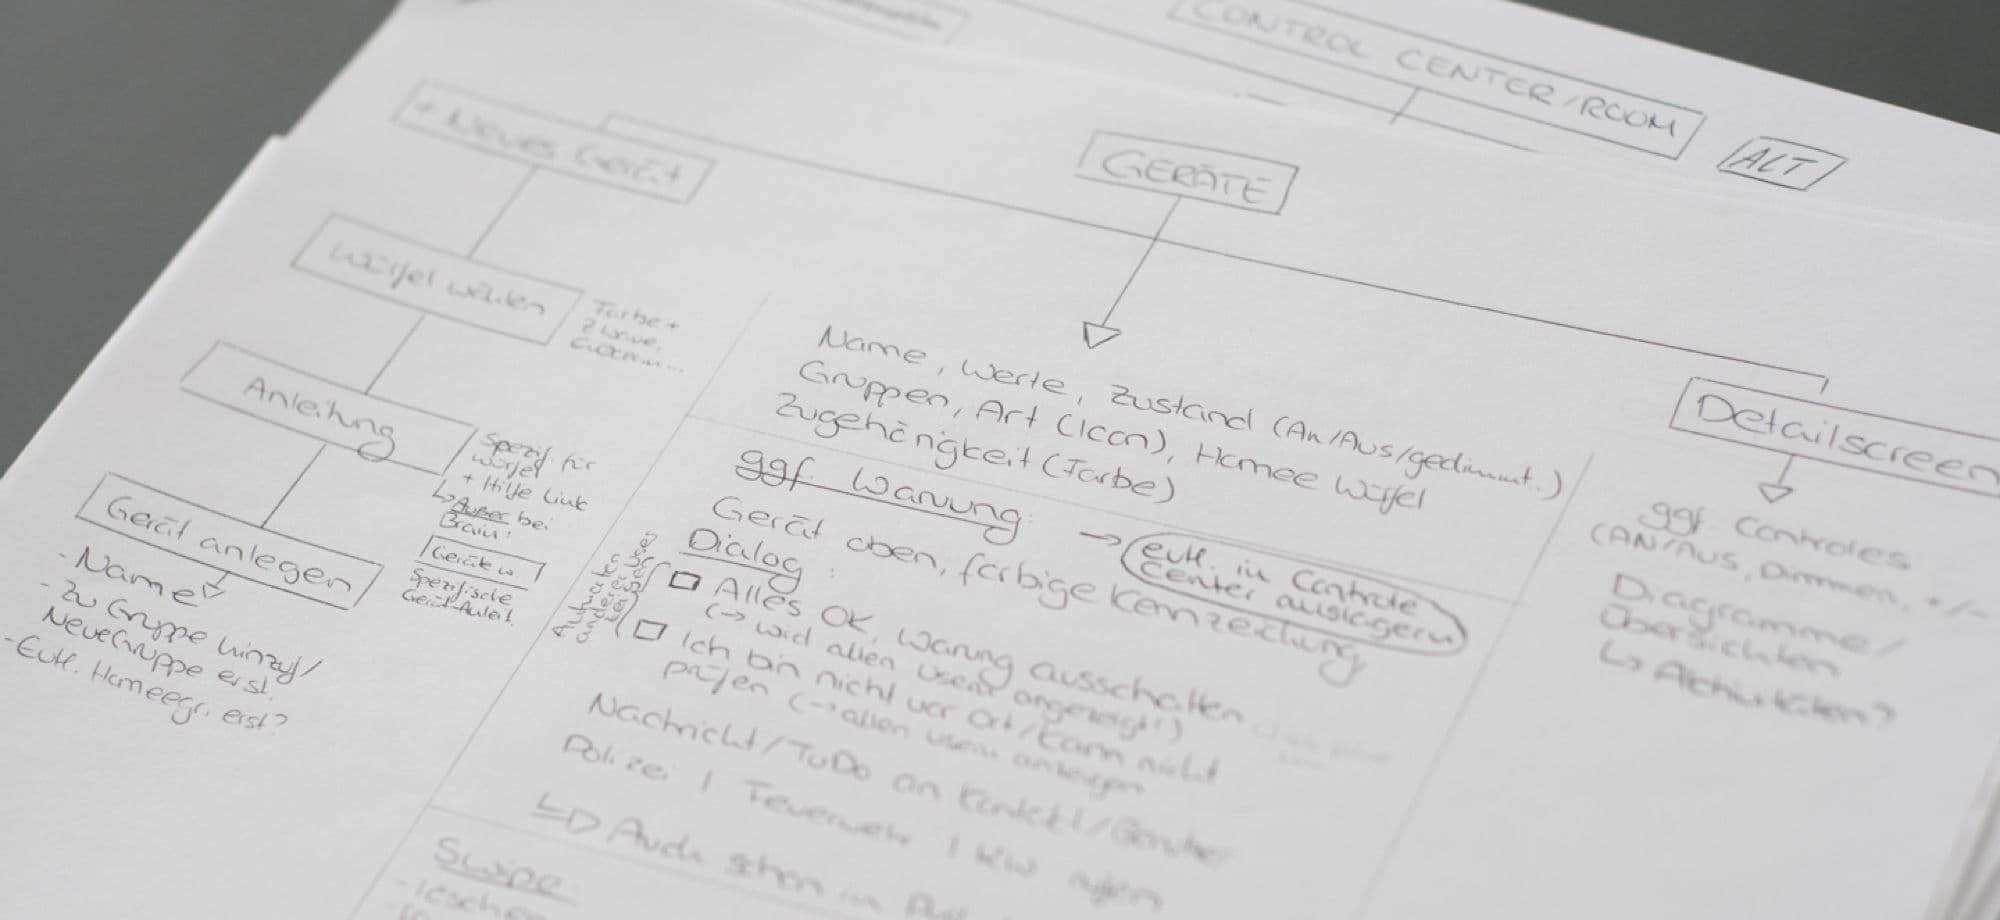 CONTROL CENTER/ROOM
ALT
+ Neues Gerät
GERÄTE
Würfel wählen
Farbe +
Anleitung
Spezif. für
Würfel
+ Hilfe Link
↳ Außer bei
Brain:
Geräte w.
Spezifische
Gerät-Anleit.
Gerät anlegen
- Name
- Zu Gruppe hinzu/
Neue Gruppe erst.
- Evtl. Homeegr. erst?
Name, Werte, Zustand (An/Aus/gedimmt.)
Gruppen, Art (Icon), Homee Würfel
Zugehörigkeit (Farbe)
ggf. Warnung: → evtl. in Controle
Center auslagern
Gerät oben, farbige Kennzeichung
Dialog:
Alles OK, Warnung ausschalten
(→ wird allen Usern angezeigt!)
Ich bin nicht vor Ort/kann nicht
prüfen (→ allen Usern anzeigen
Nachricht/ToDo an Kontakt/
Polizei / Feuerwehr /
Auch sehen
Swipe
Detailscreen
ggf Controles
(AN/AUS, Dimmen, +/-
Diagramme/
Übersichten
↳ Aktivitäten?